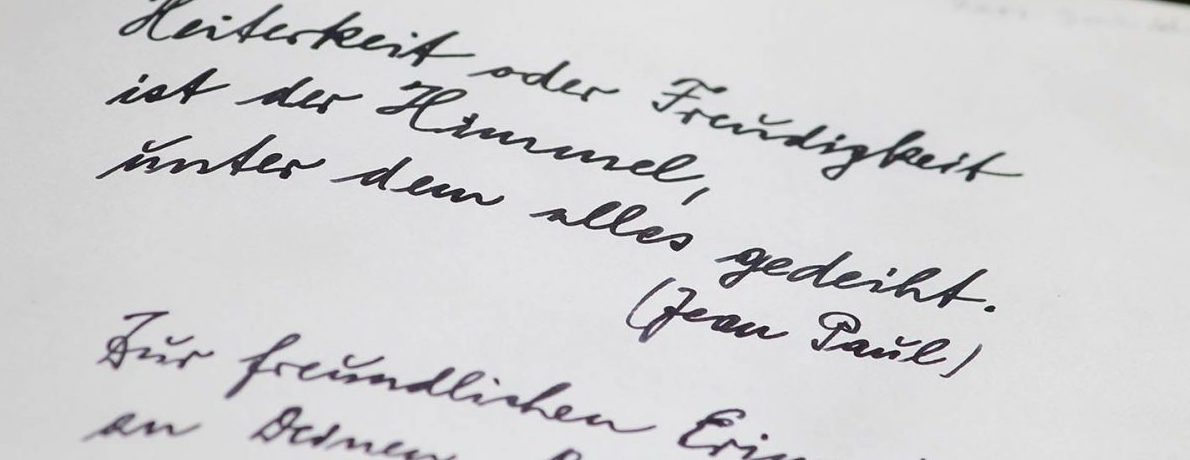 Heiterkeit oder Freudigkeit
ist der Himmel,
unter dem alles gedeiht.
(Jean Paul)
Zur freundlichen
an Deinen